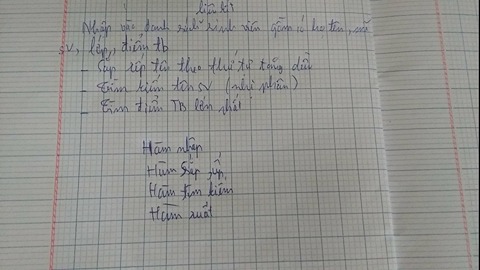 liên kết
Nhập vào danh sách sinh viên gồm có họ tên, mã
sv, lớp, điểm tb
- Sắp xếp tên theo thứ tự tăng dần
- Tìm kiếm tên sv (nhị phân)
- Tìm điểm TB lớn nhất
Hàm nhập
Hàm sắp xếp
Hàm tìm kiếm
Hàm xuất